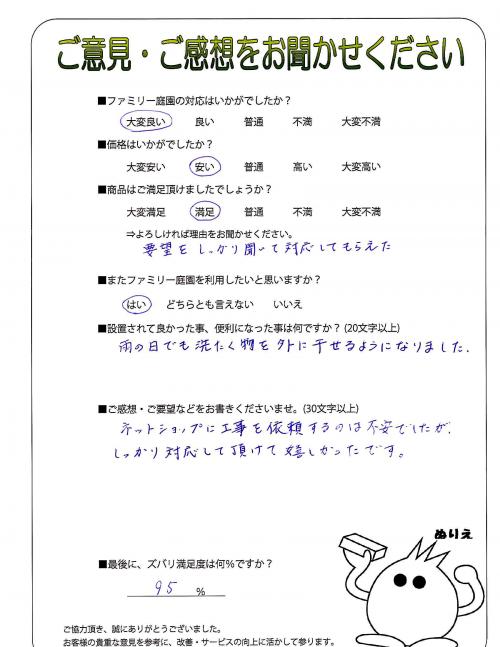 ご意見・ご感想をお聞かせください
■ファミリー庭園の対応はいかがでしたか？
大変良い 良い 普通 不満 大変不満
■価格はいかがでしたか？
大変安い 安い 普通 高い 大変高い
■商品はご満足頂けましたでしょうか？
大変満足 満足 普通 不満 大変不満
⇒よろしければ理由をお聞かせください。
要望をしっかり聞いて対応してもらえた
■またファミリー庭園を利用したいと思いますか？
はい どちらとも言えない いいえ
■設置されて良かった事、便利になった事は何ですか？(20文字以上)
雨の日でも洗たく物を外に干せるようになりました.
■ご感想・ご要望などをお書きくださいませ。(30文字以上)
ネットショップに工事を依頼するのは不安でしたが、
しっかり対応して頂けて嬉しかったです。
ぬりえ
■最後に、ズバリ満足度は何％ですか？
95 ％
ご協力頂き、誠にありがとうございました。
お客様の貴重な意見を参考に、改善・サービスの向上に活かして参ります。